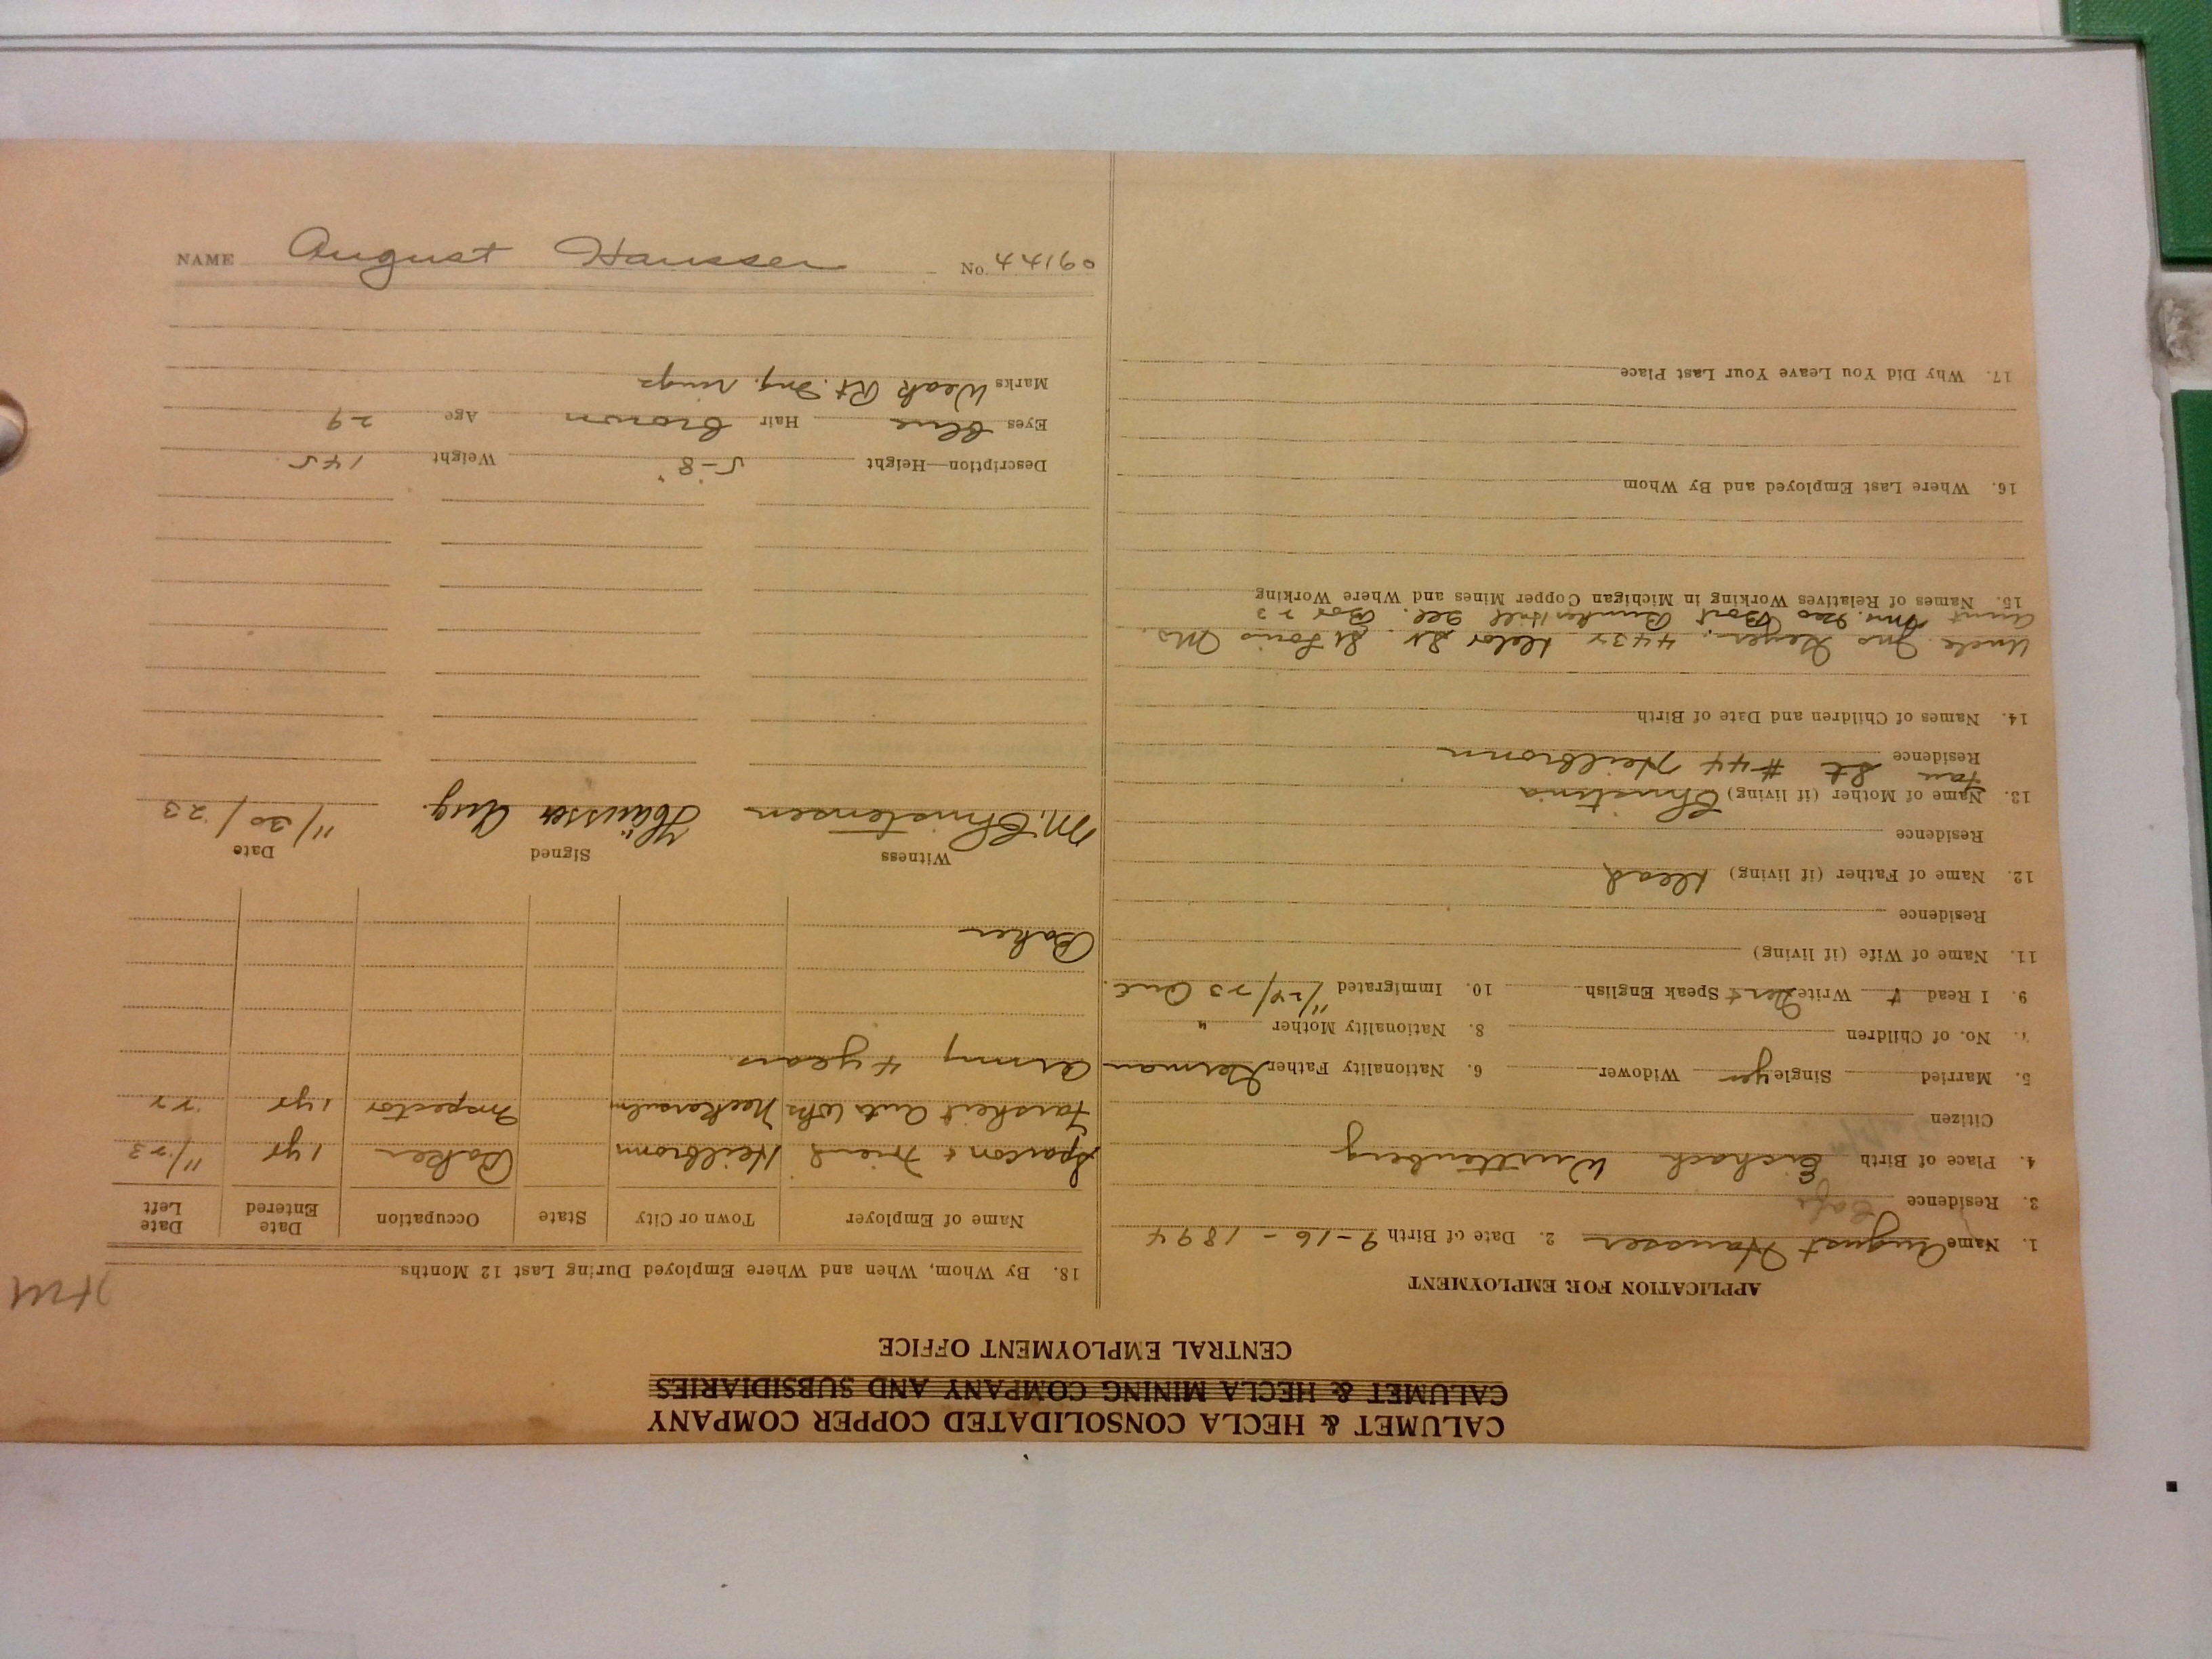 CALUMET & HECLA CONSOLIDATED COPPER COMPANY
CALUMET & HECLA MINING COMPANY AND SUBSIDIARIES
CENTRAL EMPLOYMENT OFFICE
APPLICATION FOR EMPLOYMENT
1. Name August Hausser 2. Date of Birth 9-16-1894
3. Residence
4. Place of Birth Württemberg
Citizen
5. Married Single yes Widower 6. Nationality Father German
7. No. of Children 8. Nationality Mother "
9. I Read + Write Ger + Speak English 10. Immigrated 11/24/23
11. Name of Wife (if living)
Residence
12. Name of Father (if living) dead
Residence
13. Name of Mother (if living) Christina
Residence St #44 Heilbronn
14. Names of Children and Date of Birth
Uncle Jno 4432 St St Louis Mo.
Aunt Mrs. Geo Bort Bunker Hill Ill. Box 23
15. Names of Relatives Working in Michigan Copper Mines and Where Working
16. Where Last Employed and By Whom
17. Why Did You Leave Your Last Place
18. By Whom, When and Where Employed During Last 12 Months
Name of Employer Town or City State Occupation Date Entered Date Left
& Heilbronn Baker 1 yr 11/23
Auto Wks Neckarsulm Inspector 1 yr 22
Army 4 years
Baker
Witness Signed Date
M. Christensen Häusser Aug. 11/30/23
Description—Height 5-8 Weight 145
Eyes Blue Hair Brown Age 29
Marks Weak Rt. Ing. rings
NAME August Hausser No. 44160
HM